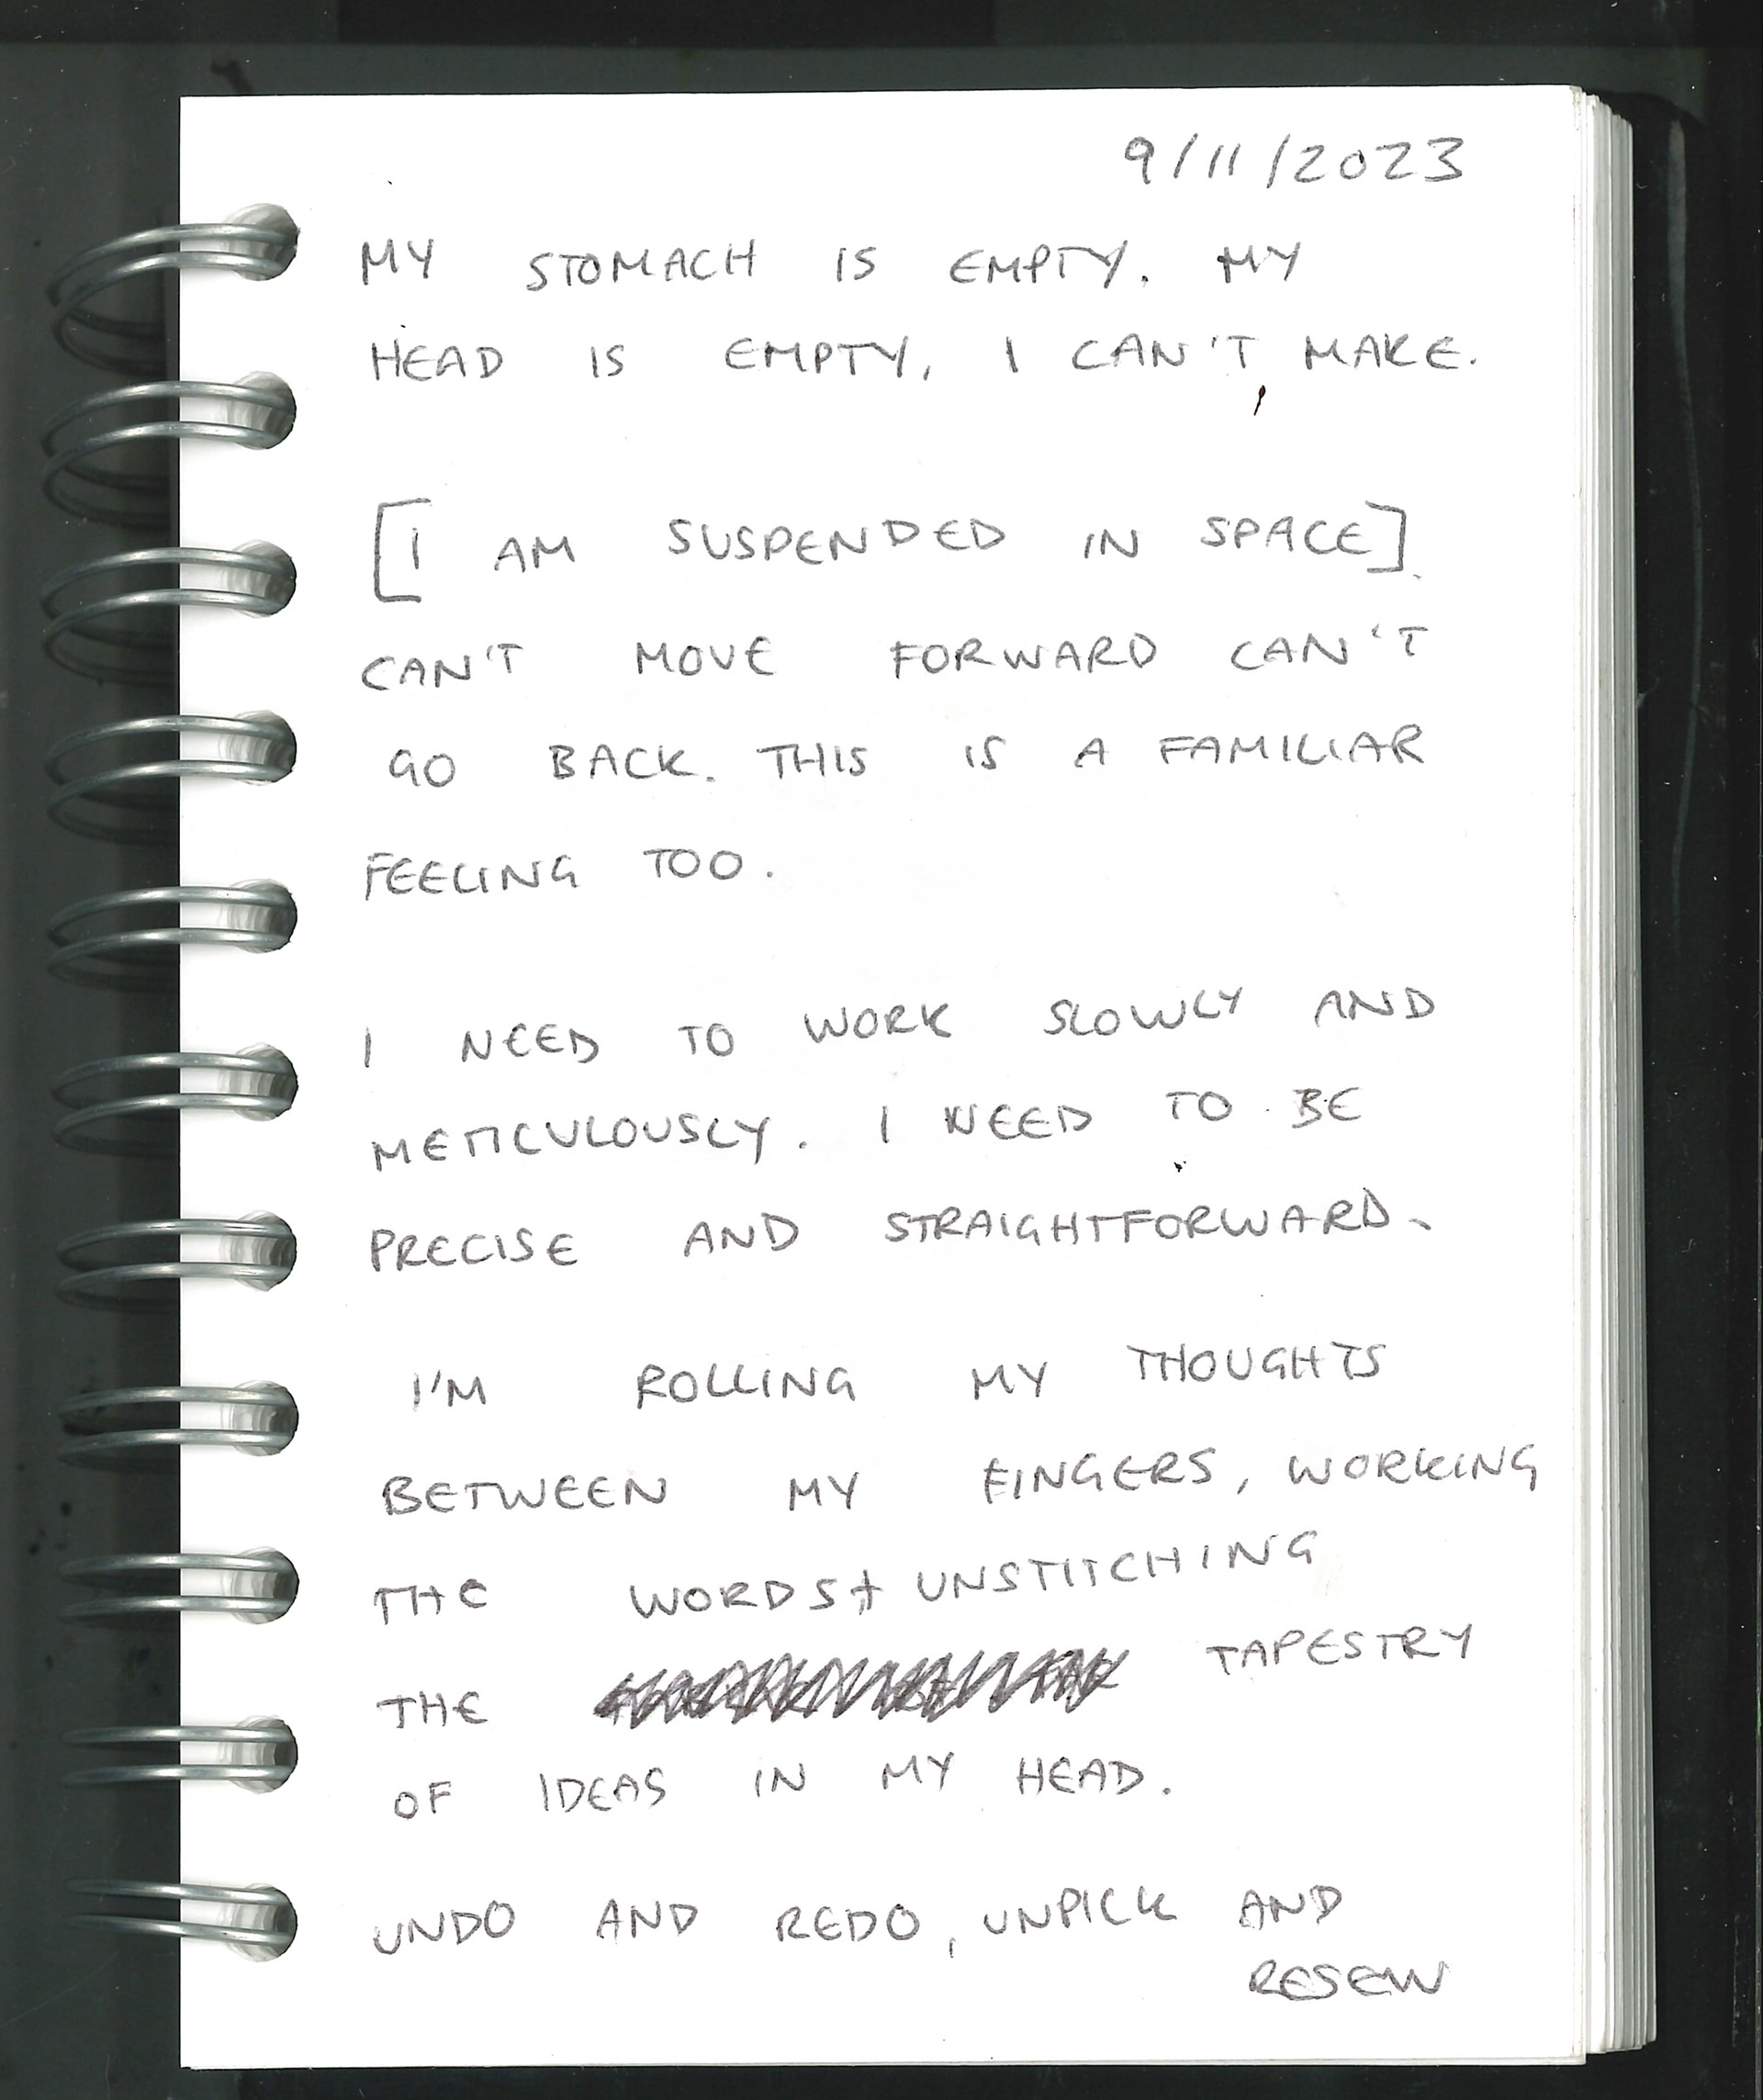 9/11/2023
MY STOMACH IS EMPTY. MY
HEAD IS EMPTY, I CAN'T MAKE.
[I AM SUSPENDED IN SPACE]
CAN'T MOVE FORWARD CAN'T
GO BACK. THIS IS A FAMILIAR
FEELING TOO.
I NEED TO WORK SLOWLY AND
METICULOUSLY. I NEED TO BE
PRECISE AND STRAIGHTFORWARD.
I'M ROLLING MY THOUGHTS
BETWEEN MY FINGERS, WORKING
THE WORDS + UNSTITCHING
THE TAPESTRY
OF IDEAS IN MY HEAD.
UNDO AND REDO, UNPICK AND
RESEW